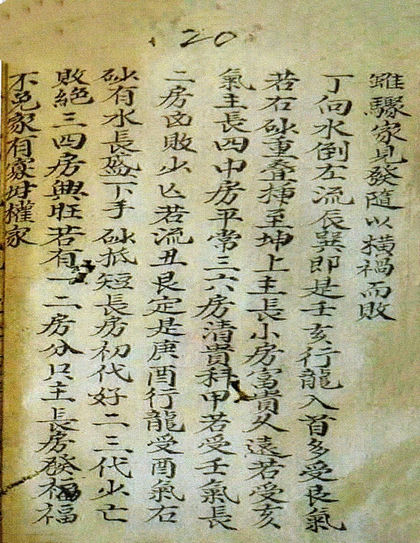 20
雖驟家見發隨以橫禍而敗
丁向水倒左流辰巽即是壬亥行龍入首多受艮氣
若右砂重叠揷至坤上主長小房富貴久遠若受亥
氣主長四中房平常三六房清貴科甲若受壬氣長
二房凶敗少亡若流丑艮定是庚酉行龍受酉氣右
砂有水長盛下手砂抵短長房初代好二三代少亡
敗絕三四房興旺若有一二房分只主長房發福福
不免家有寡母權家